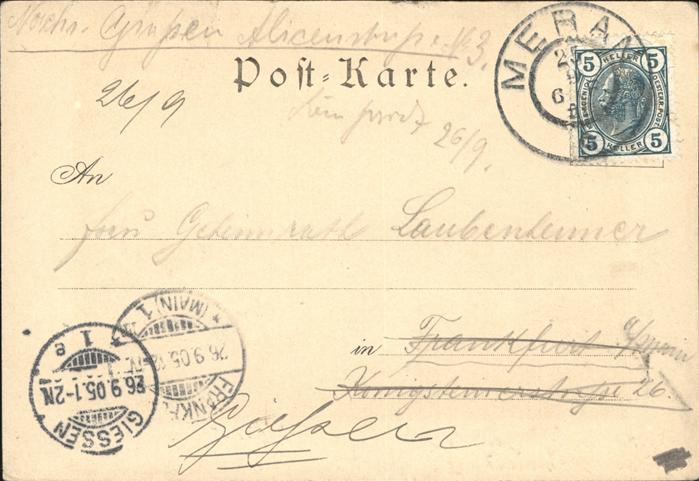 Alicenstraße No 3.
Post-Karte.
26/9
26/9.
MERAN
5 HELLER 5
5 HELLER 5
An
Frau Geheimrath Laubenheimer
in Frankfurt a/Main
Königsteinerstraße 26.
Giessen
(MAIN) 1
26.9.05.
FRANKF
GIESSEN
1 e
26.9.05.1-2N